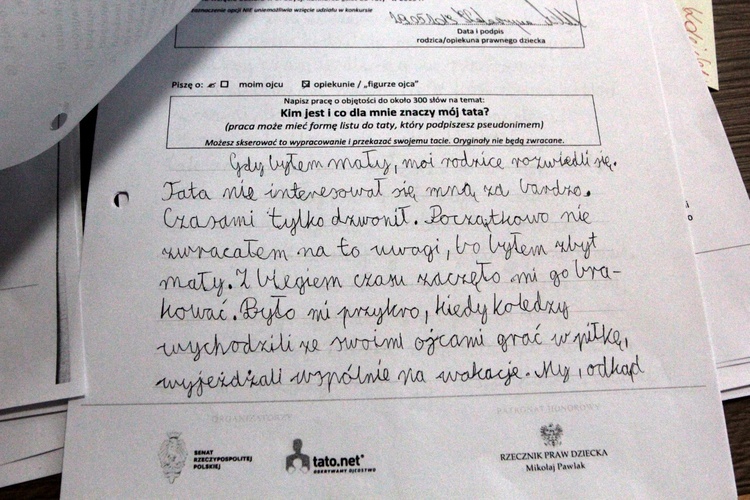 zaznaczenie opcji NIE uniemożliwie wzięcie udziału w konkursie
Data i podpis
rodzica/opiekuna prawnego dziecka
Piszę o: moim ojcu opiekunie / „figurze ojca”
Napisz pracę o objętości do około 300 słów na temat:
Kim jest i co dla mnie znaczy mój tata?
(praca może mieć formę listu do taty, który podpiszesz pseudonimem)
Możesz skserować to wypracowanie i przekazać swojemu tacie. Oryginały nie będą zwracane.
Gdy byłem mały, moi rodzice rozwiedli się.
Tata nie interesował się mną za bardzo.
Czasami tylko dzwonił. Początkowo nie
zwracałem na to uwagi, bo byłem zbyt
mały. Z biegiem czasu zaczęło mi go bra-
kować. Było mi przykro, kiedy koledzy
wychodzili ze swoimi ojcami grać w piłkę,
wyjeżdżali wspólnie na wakacje. My, odkąd
ORGANIZATORZY
PATRONAT HONOROWY
SENAT
RZECZYPOSPOLITEJ
POLSKIEJ
tato.net
ODKRYWAMY OJCOSTWO
RZECZNIK PRAW DZIECKA
Mikołaj Pawlak